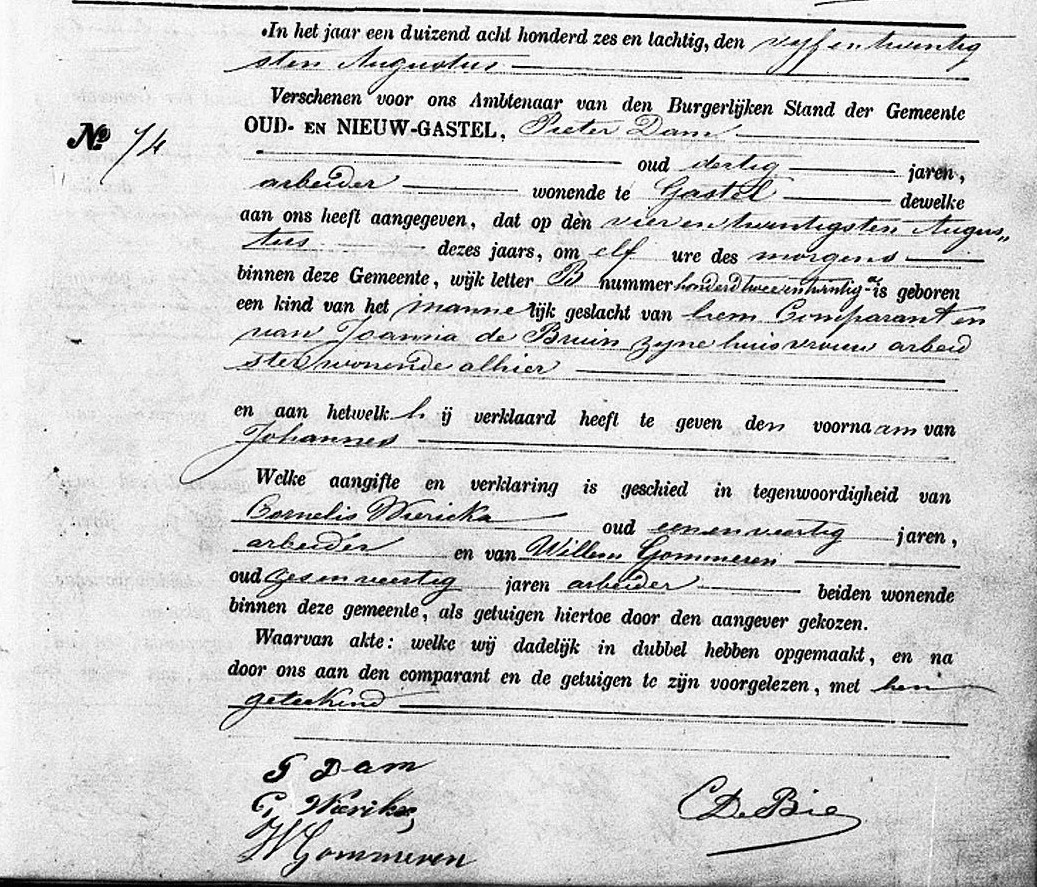 In het jaar een duizend acht honderd zes en tachtig, den vyf en twintig
sten Augustus
Verschenen voor ons Ambtenaar van den Burgerlijken Stand der Gemeente
No 74 OUD- EN NIEUW-GASTEL, Pieter Dam
oud dertig jaren,
arbeider wonende te Gastel dewelke
aan ons heeft aangegeven, dat op den vier en twintigsten Augus„
tus dezes jaars, om elf ure des morgens
binnen deze Gemeente, wijk letter B nummer honderd twee en twintig a is geboren
een kind van het mannelijk geslacht van hem Comparant en
van Joanna de Bruin zyne huisvrouw arbeid
ster wonende alhier
en aan hetwelk hij verklaard heeft te geven den voornaam van
Johannes
Welke aangifte en verklaring is geschied in tegenwoordigheid van
Cornelis Wiericka oud een en veertig jaren,
arbeider en van Willem Gommeren
oud zes en veertig jaren arbeider beiden wonende
binnen deze gemeente, als getuigen hiertoe door den aangever gekozen.
Waarvan akte: welke wij dadelijk in dubbel hebben opgemaakt, en na
door ons aan den comparant en de getuigen te zijn voorgelezen, met hen
geteekend
P Dam
C, Wierikx
W Gommeren
C De Bie